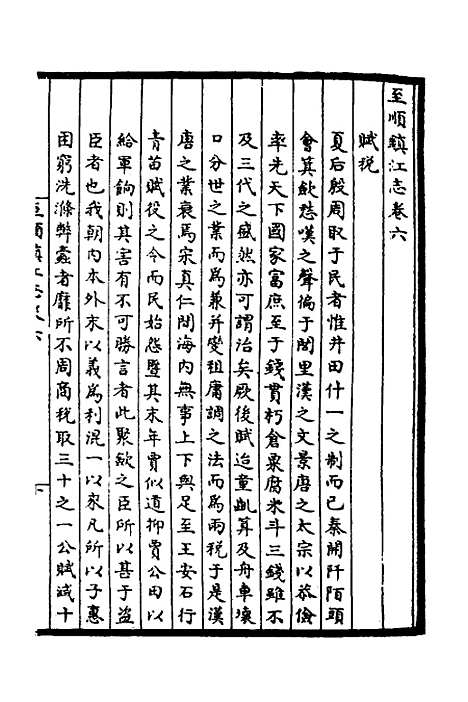 至順鎮江志卷六
賦稅
夏后殷周取于民者惟井田什一之制而已秦開阡陌頭
會箕歛愁嘆之聲徧于閭里漢之文景唐之太宗以恭儉
率先天下國家富庶至于錢貫朽倉粟腐米斗三錢雖不
及三代之盛然亦可謂治矣厥後賦迨童齔算及舟車壞
口分世之業而爲兼并變租庸調之法而爲兩稅于是漢
唐之業衰焉宋真仁間海内無事上下與足至王安石行
青苗賦役之令而民始怨暨其末年賈似道抑賣公田以
給軍餉則其害有不可勝言者此聚歛之臣所以甚于盜
臣者也我朝内本外末以義爲利混一以來凡所以子惠
困窮洗滌弊蠹者靡所不周商稅取三十之一公賦減十
至順鎮江志卷六